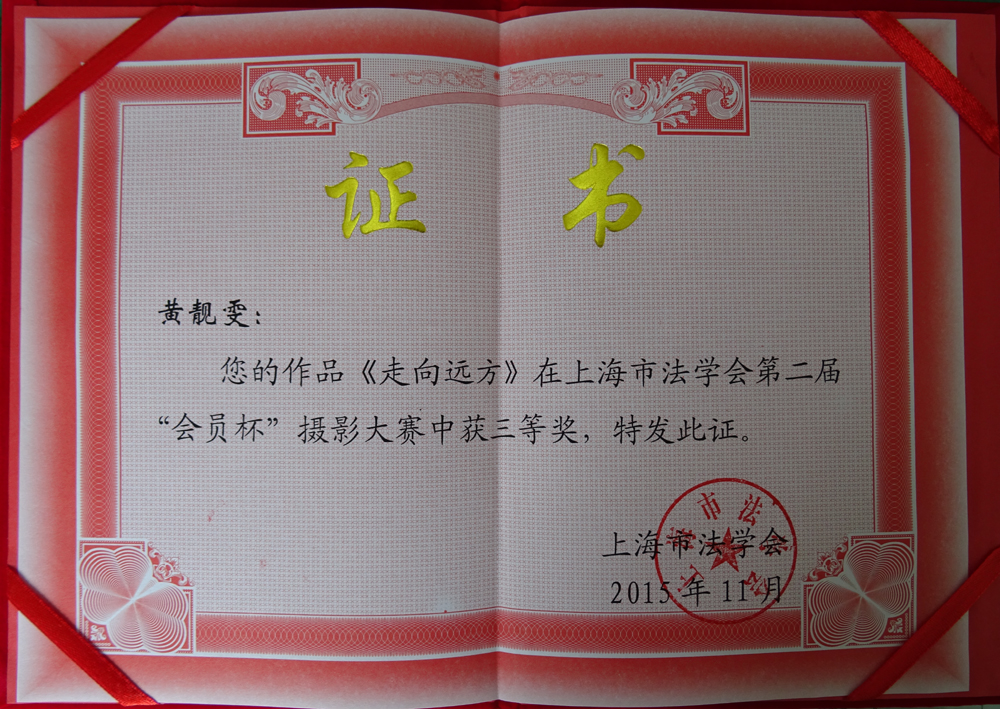 证书
黄靓雯：
您的作品《走向远方》在上海市法学会第二届
“会员杯”摄影大赛中获三等奖，特发此证。
上海市法学会
2015年11月
上海市法学会